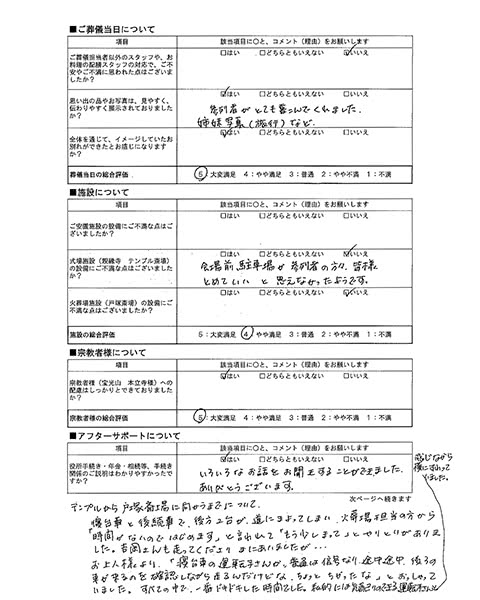 ■ご葬儀当日について
項目 該当項目に○と、コメント（理由）をお願いします
ご葬儀担当者以外のスタッフや、お料理の配膳スタッフの対応で、ご不安やご不満に思われた点はございましたか？
□はい □どちらともいえない ☑いいえ
思い出の品やお写真は、見やすく、伝わりやすく展示されておりましたか？
☑はい □どちらともいえない □いいえ
参列者がとても喜こんでくれました。
姉妹写真（旅行）など。
全体を通じて、イメージしていたお別れができたとお感じになりますか？
☑はい □どちらともいえない □いいえ
葬儀当日の総合評価 5：大変満足 4：やや満足 3：普通 2：やや不満 1：不満
■施設について
項目 該当項目に○と、コメント（理由）をお願いします
ご安置施設の設備にご不満な点はございましたか？
□はい □どちらともいえない □いいえ
式場施設（ テンプル斎場）の設備にご不満な点はございましたか？
□はい □どちらともいえない ☑いいえ
会場前駐車場が参列者の方々、皆様
とめていいと思えなかったようです。
火葬場施設（戸塚斎場）の設備にご不満な点はございましたか？
□はい □どちらともいえない □いいえ
施設の総合評価 5：大変満足 4：やや満足 3：普通 2：やや不満 1：不満
■宗教者様について
項目 該当項目に○と、コメント（理由）をお願いします
宗教者様（宝光山 本立寺様）への配慮はしっかりとできておりましたか？
☑はい □どちらともいえない □いいえ
宗教者様の総合評価 5：大変満足 4：やや満足 3：普通 2：やや不満 1：不満
■アフターサポートについて
項目 該当項目に○と、コメント（理由）をお願いします
役所手続き・年金・相続等、手続き関係のご説明はわかりやすかったですか？
☑はい □どちらともいえない □いいえ
いろいろなお話をお聞きすることができました。
ありがとうございます。
次ページへ続きます
テンプルから戸塚斎場に向かうまでについて。
寝台車と後続車で、後方2台が、道にまよってしまい、火葬場担当の方から
「時間がないのではじめます」と言われて「もう少しまって」とやりとりがありま
した。吉岡さんも走ってくださり まにあいましたが…
お上人様より、「寝台車の運転手さんが、普通は信号など、途中途中、後ろの
車が来るのを確認しながら走るんだけどな、ちょっとちがったな」とおっしゃって
いました。すべての中で、一番ドキドキした時間でした。私的には気配りのできる運転手さんと
感じながら
後にすわって
いました。